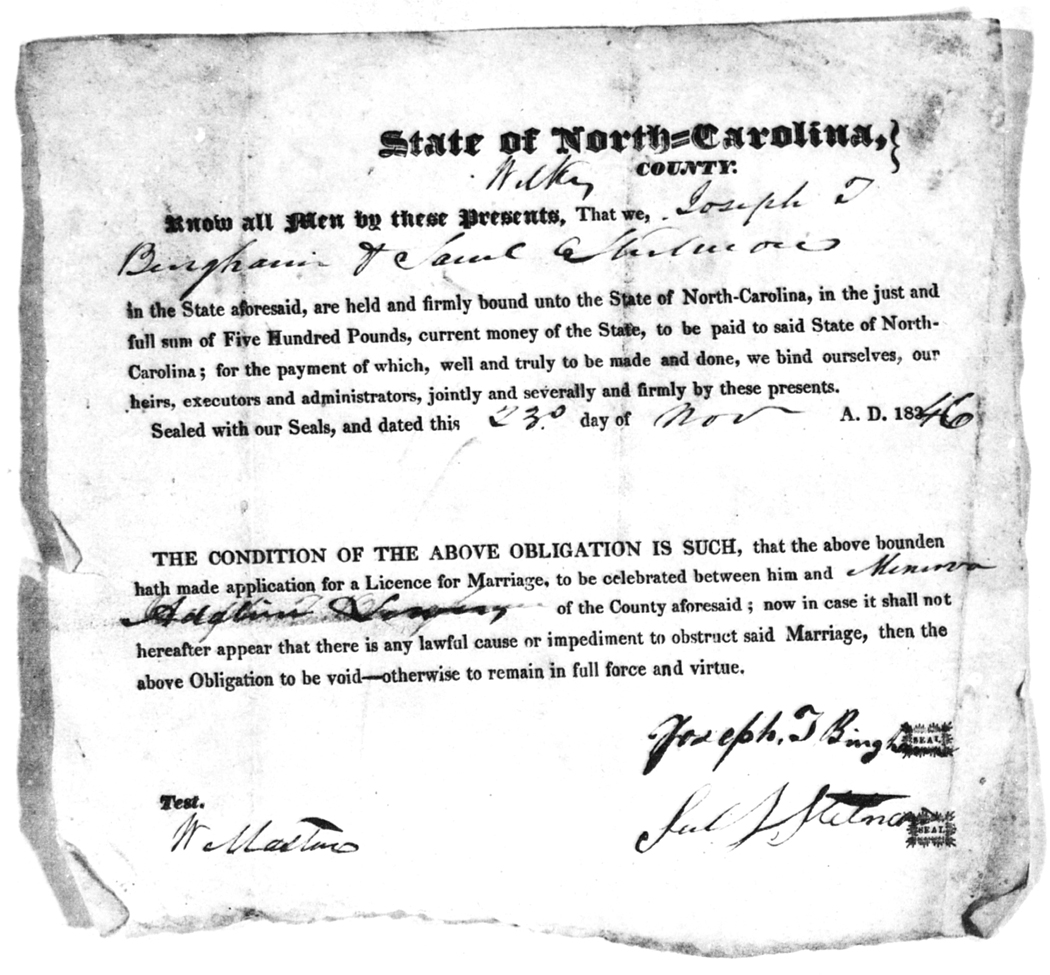 State of North-Carolina,
Wilkes COUNTY.
Know all Men by these Presents, That we, Joseph T
Bingham & Saml
in the State aforesaid, are held and firmly bound unto the State of North-Carolina, in the just and
full sum of Five Hundred Pounds, current money of the State, to be paid to said State of North-
Carolina; for the payment of which, well and truly to be made and done, we bind ourselves, our
heirs, executors and administrators, jointly and severally and firmly by these presents.
Sealed with our Seals, and dated this 23d day of Nov A. D. 1846
THE CONDITION OF THE ABOVE OBLIGATION IS SUCH, that the above bounden
hath made application for a Licence for Marriage, to be celebrated between him and Minerva
of the County aforesaid; now in case it shall not
hereafter appear that there is any lawful cause or impediment to obstruct said Marriage, then the
above Obligation to be void—otherwise to remain in full force and virtue.
Joseph. T Bingh SEAL
Test.
W Mastin
SEAL